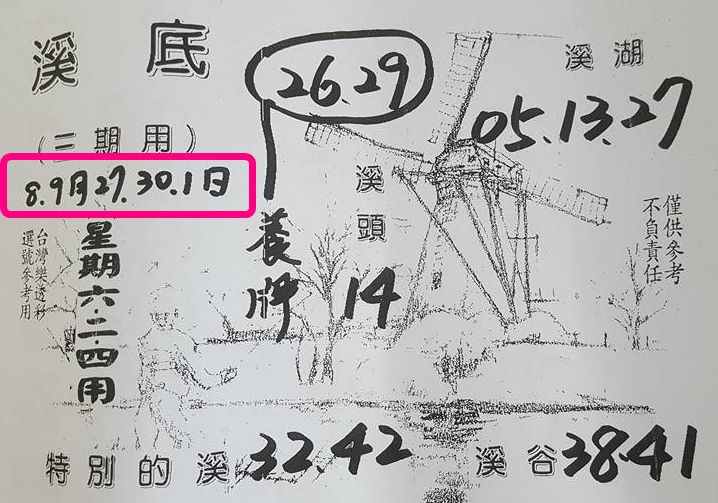 溪底
26.29
溪湖
05.13.27
(三期用)
8.9月27.30.1日
星期六.二.四用
台灣樂透彩
選號參考用
養牌
溪頭
14
僅供參考
不負責任
特別的溪 32.42
溪谷 38.41